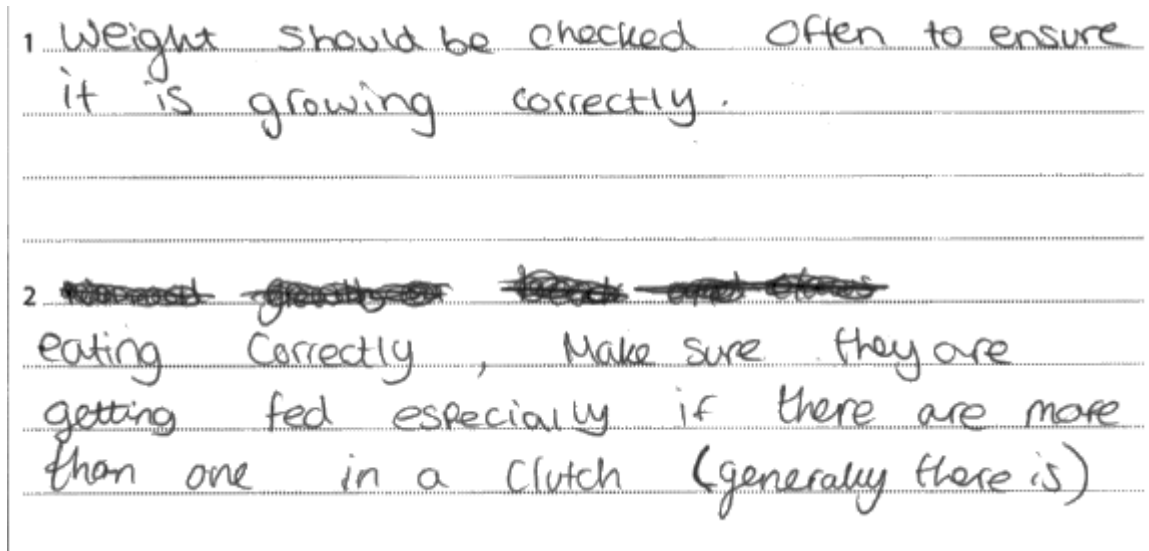 1 Weight should be checked often to ensure
it is growing correctly.
2
eating Correctly, Make sure they are
getting fed especially if there are more
than one in a Clutch (generally there is)